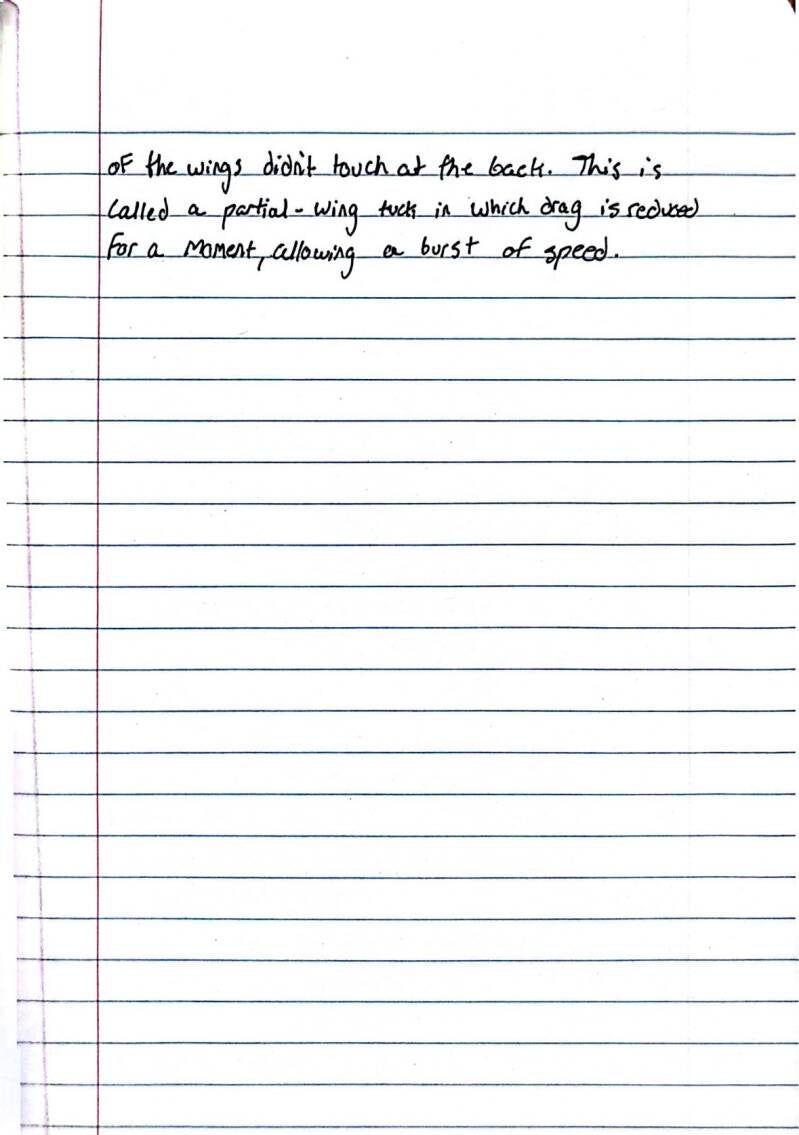 of the wings didn't touch at the back. This is
called a partial-wing tuck in which drag is reduced
for a moment, allowing a burst of speed.